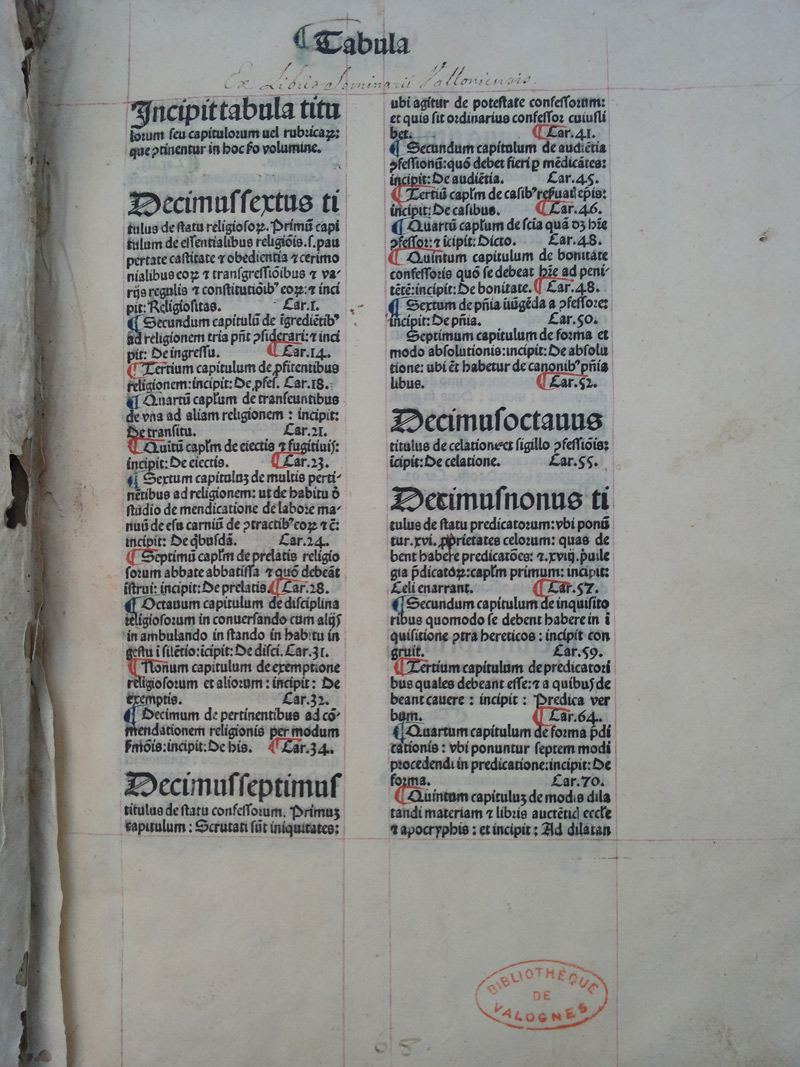 ¶ Tabula
Ex Libris Seminarii Valloniensis.
Incipit tabula titu
lorum seu capitulorum uel rubricaꝝ:
que ↄtinentur in hoc volumine.
Decimussextus ti
tulus de statu religiosoꝝ. Primū capi
tulum de essentialibus religiōis. s. pau
pertate castitate ⁊ obedientia ⁊ cerimo
nialibus eoꝝ ⁊ transgressiōibus ⁊ va-
rijs regulis ⁊ constitutiōibꝰ eoꝝ: ⁊ inci
pit: Religiositas. Car.1.
¶ Secundum capitulū de īgrediētibꝰ
ad religionem tria pn̄t ↄsiderari: ⁊ inci
pit: De ingressu. ¶ Car.14.
¶ Tertium capitulum de ꝓfitentibus
religionem: incipit: De ꝓfes. Car.18.
¶ Quartū capl'um de transeuntibus
de vna ad aliam religionem : incipit:
De transitu. Car.21.
¶ Quītū capl'm de eiectis ⁊ fugitiuis:
incipit: De eiectis. ¶ Car.23.
¶ Sextum capituluꝫ de multis perti-
nētibus ad religionem: ut de habitu ō
studio de mendicatione de labore ma-
nuū de esu carniū de ↄtractibꝰ eoꝝ ⁊ c̄:
incipit: De qbusdā. Car.24.
¶ Septimū capl'm de prelatis religio
sorum abbate abbatissa ⁊ quō debeāt
īstrui: incipit: De prelatis. ¶ Car.28.
¶ Octauum capitulum de disciplina
religiosorum in conuersando cum alijs
in ambulando in stando in habitu in
gestu ī silētio: īcipit: De disci. Car.31.
¶ Nonum capitulum de exemptione
religiosorum et aliorum : incipit : De
exemptis. Car.32.
¶ Decimum de pertinentibus ad cō-
mendationem religionis per modum
s̄mōis: incipit: De his. ¶ Car.34.
Decimusseptimus
titulus de statu confessorum. Primuꝫ
capitulum : Scrutati sūt iniquitates:
ubi agitur de potestate confessorum:
et quis sit ordinarius confessor cuiusli
bet. ¶ Car.41.
¶ Secundum capitulum de audiētia
ↄfessionū: quō debet fieri ꝑ mēdicātes:
incipit: De audiētia. Car.45.
¶ Tertiū capl'm de casibꝰ reseruatl ep̄is:
incipit: De casibus. ¶ Car.46.
¶ Quartū capl'um de scīa quā dꝫ hr̄e
ↄfessor: ⁊ īcipit: Dicto. Car.48.
¶ Quintum capitulum de bonitate
confessoris quō se debeat hr̄e ad peni-
tētē: incipit: De bonitate. ¶ Car.48.
¶ Sextum de pn̄ia iūgēda a ↄfessore:
incipit: De pn̄ia. Car.50.
Septimum capitulum de forma et
modo absolutionis: incipit: De absolu
tione: ubi ēt habetur de canonibꝰ pn̄ia
libus. ¶ Car.52.
Decimusoctauus
titulus de celatione et sigillo ↄfessiōis:
īcipit: De celatione. Car.55.
Decimusnonus ti
tulus de statu predicatorum: vbi ponū
tur .xvi. ꝓprietates celorum: quas de
bent habere predicatōes: ⁊ .xviij. p̄uile
gia p̄dicatoꝝ: capl'm primum: incipit:
Celi enarrant. ¶ Car.57.
¶ Secundum capitulum de inquisito
ribus quomodo se debent habere in ī
quisitione ↄtra hereticos : incipit con
gruit. Car.59.
¶ Tertium capitulum de predicatori
bus quales debeant esse: ⁊ a quibus de
beant cauere : incipit : Predica ver
bum. ¶ Car.64.
¶ Quartum capitulum de forma p̄di
cationis : vbi ponuntur septem modi
procedendi in predicatione: incipit: De
forma. Car.70.
¶ Quintum capituluꝫ de modis dila
tandi materiam ⁊ libris auctētici eccl'e
⁊ apocryphis : et incipit : Ad dilatan
BIBLIOTHÈQUE
DE
VALOGNES